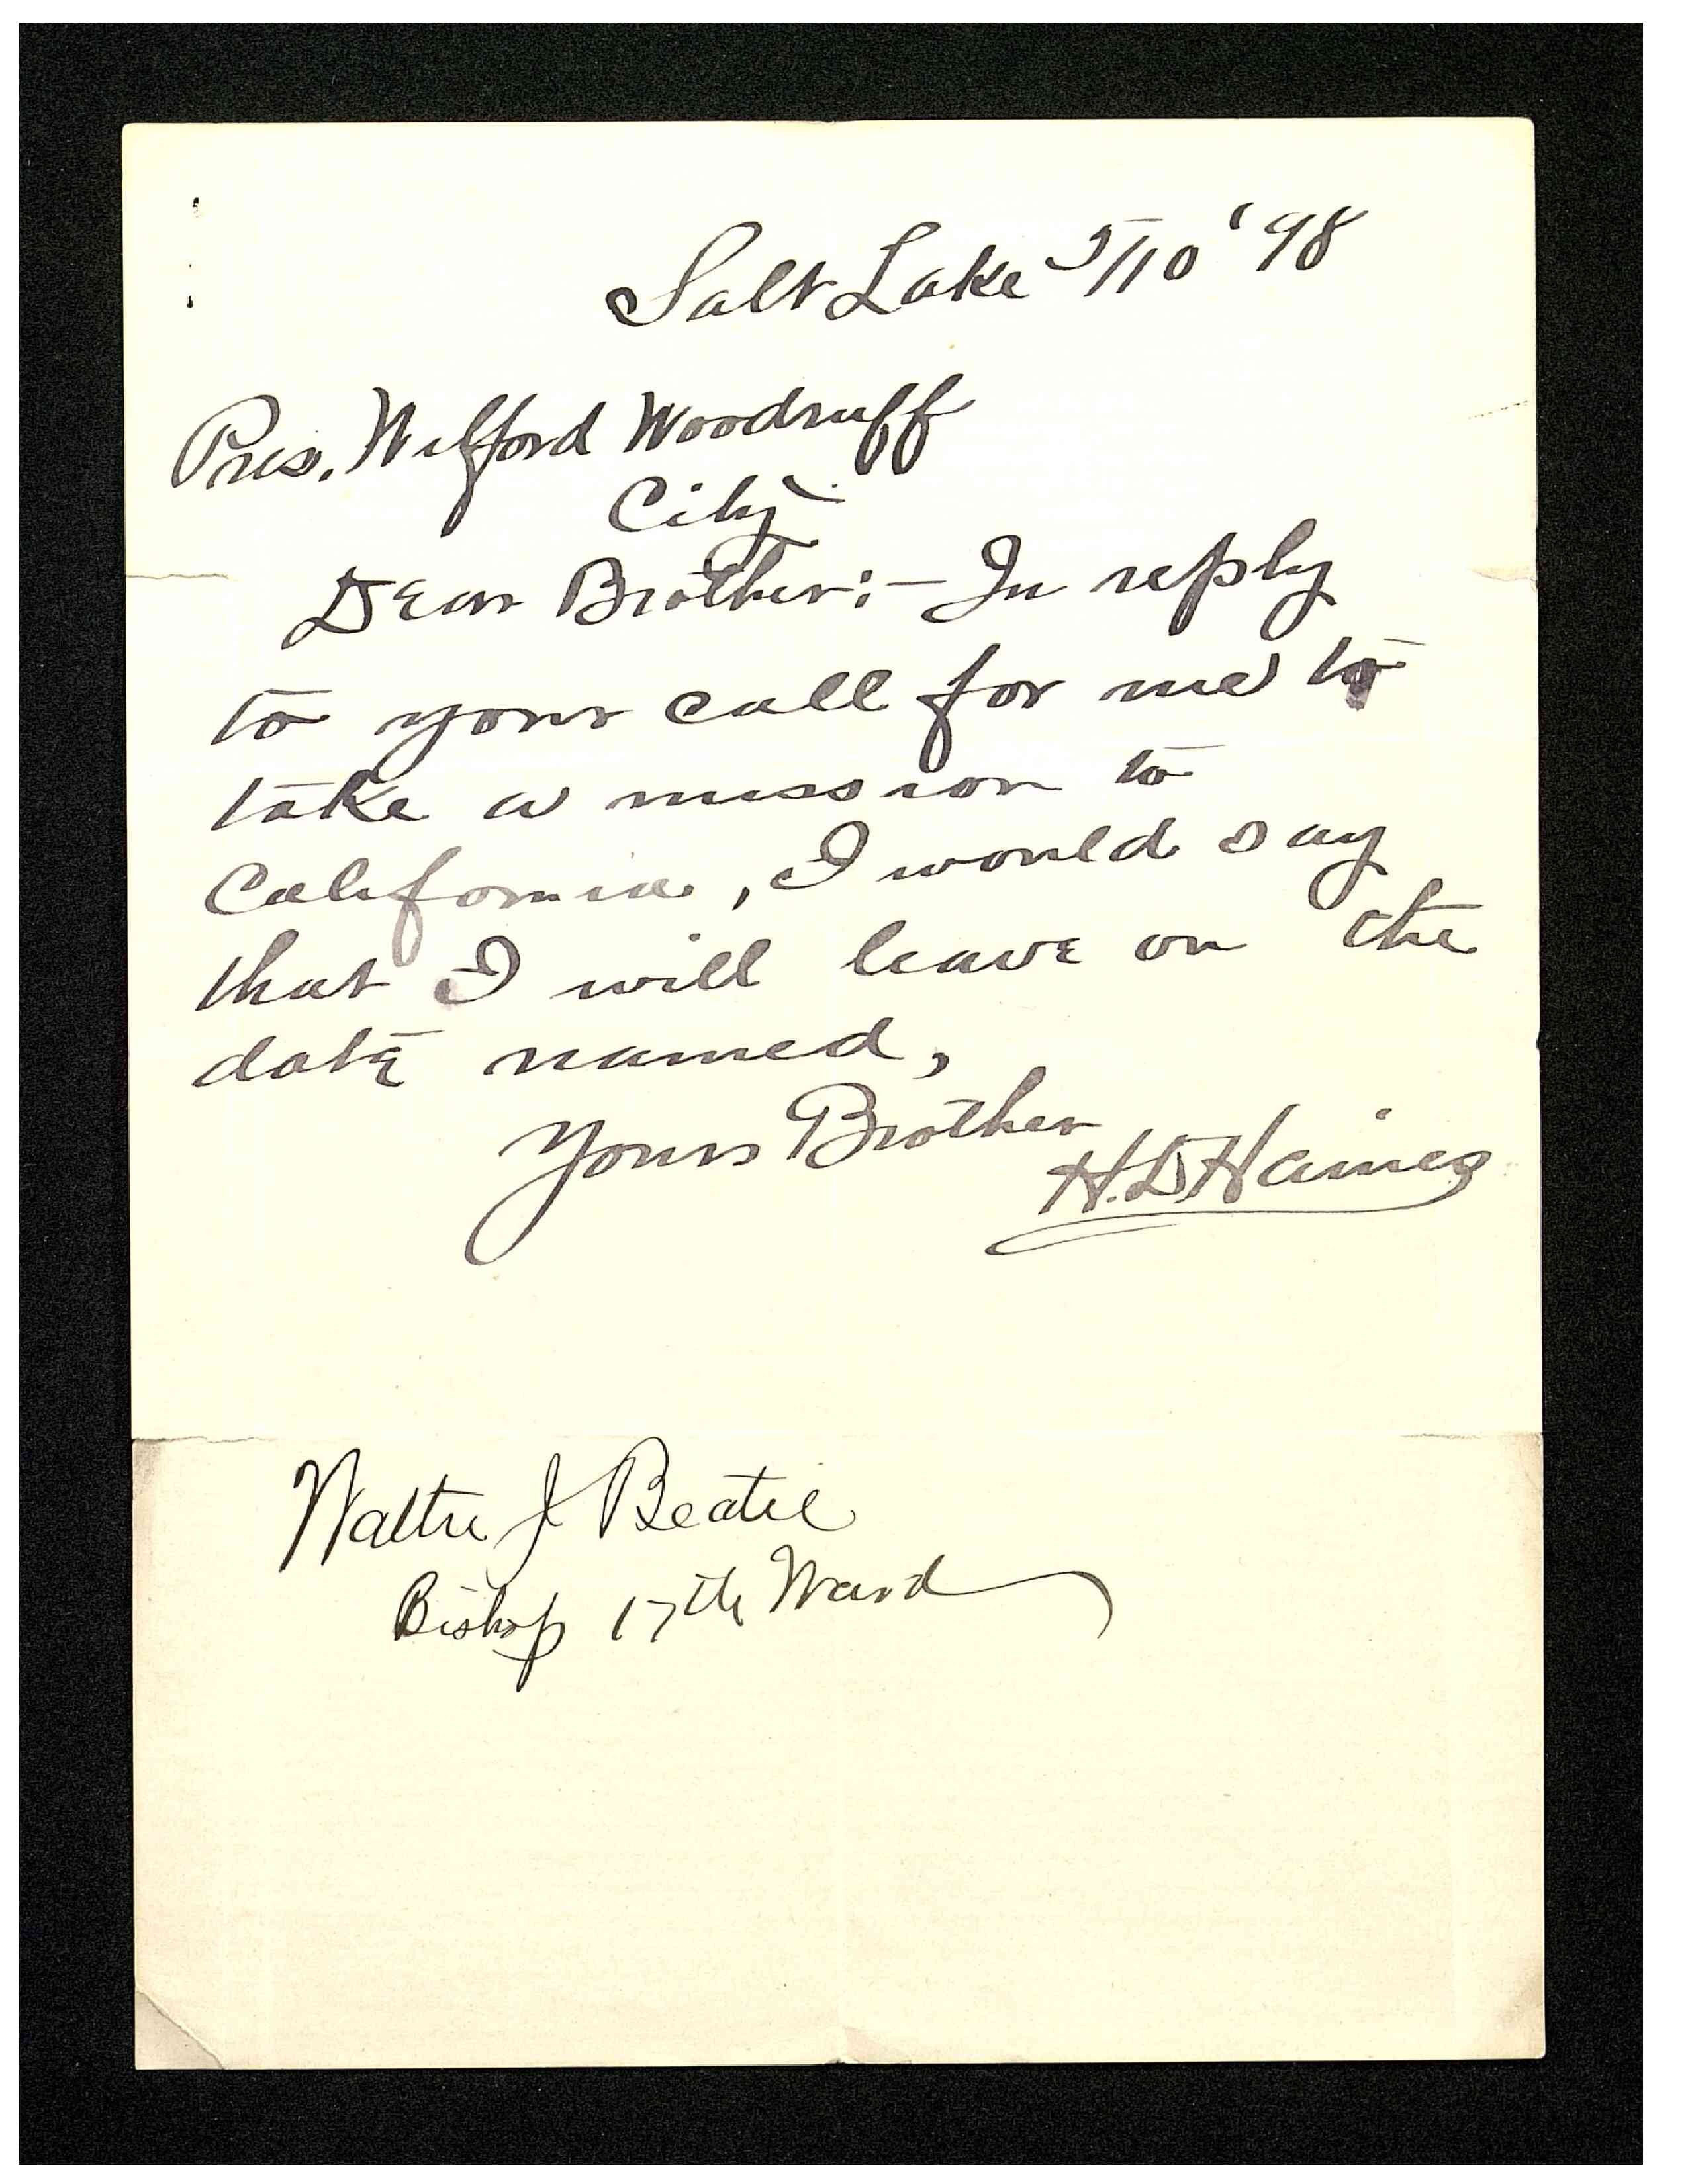 Salt Lake 5/10 '98
Pres. Wilford Woodruff
City
Dear Brother:- In reply
to your call for me to
take a mission to
California, I would say
that I will leave on the
date named,
Yours Brother
H. D Haines
Walter J Beatie
Bishop 17th Ward